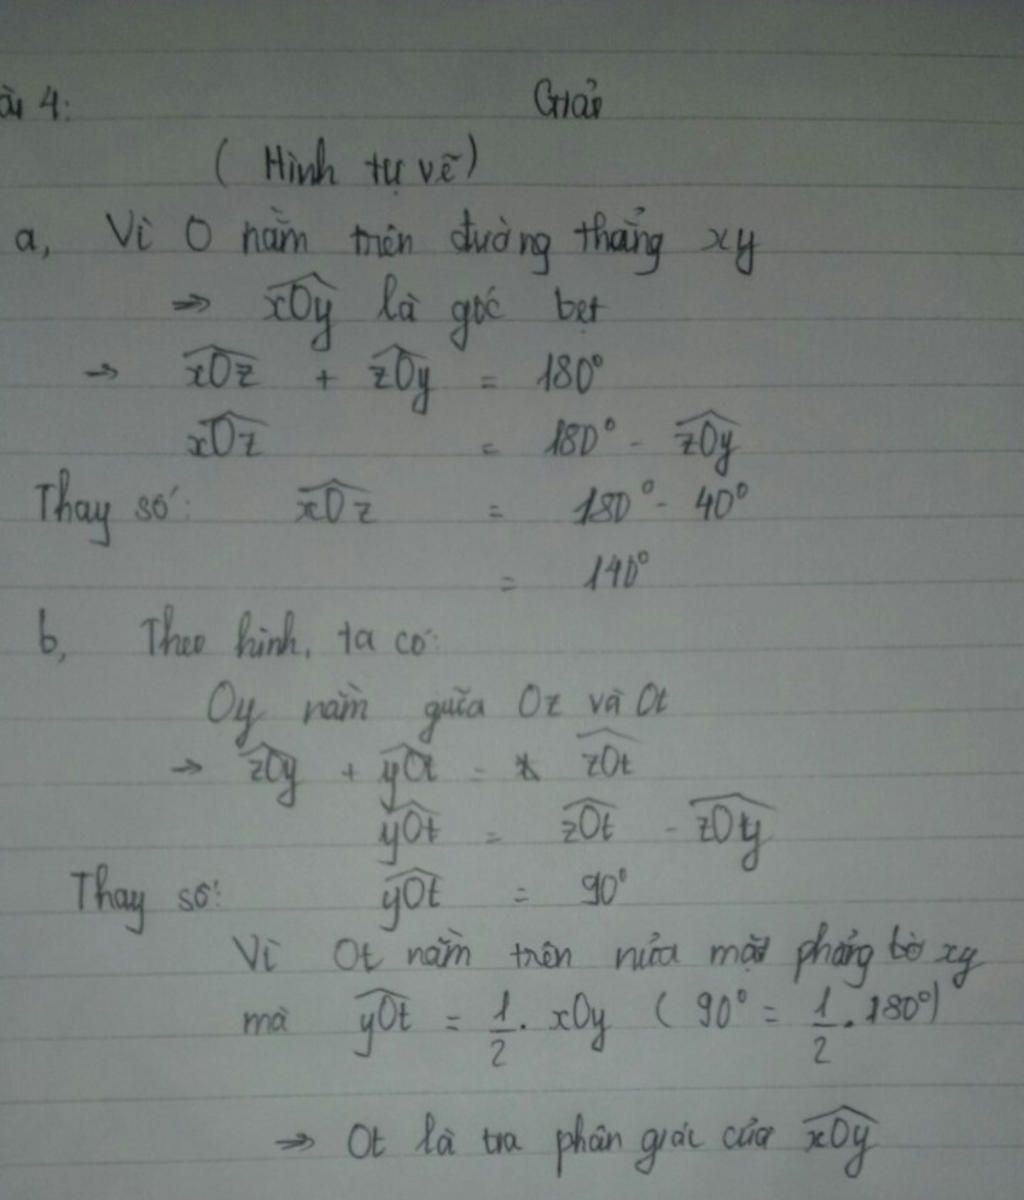 ài 4: Giải
( Hình tự vẽ)
a, Vì O nằm trên đường thẳng xy
=> xOy là góc bẹt
→ xOz + zOy = 180°
xOz = 180° - zOy
Thay số: xOz = 180° - 40°
= 140°
b, Theo hình, ta có:
Oy nằm giữa Oz và Ot
→ zOy + yOt = zOt
yOt = zOt - zOty
Thay số: yOt = 90°
Vì Ot nằm trên nửa mặt phẳng bờ xy
mà yOt = 1/2 . xOy ( 90° = 1/2 . 180°)
=> Ot là tra phân giác của xOy